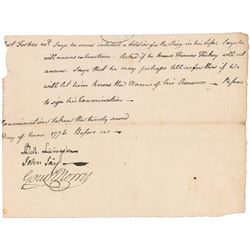 Forbes Says he never inlisted a Soldier for the King in his Life; Says he
will answer no Questions. Asked if he knows Thomas Hickey will not
answer. Says that he may perhaps tell us if we
will let him know the Names of his Accusers. Refuses
to sign his Examination
Examination taken the twenty second
Day of June 1776 Before us
Phil. Livingston
John Jay
Gouv Morris